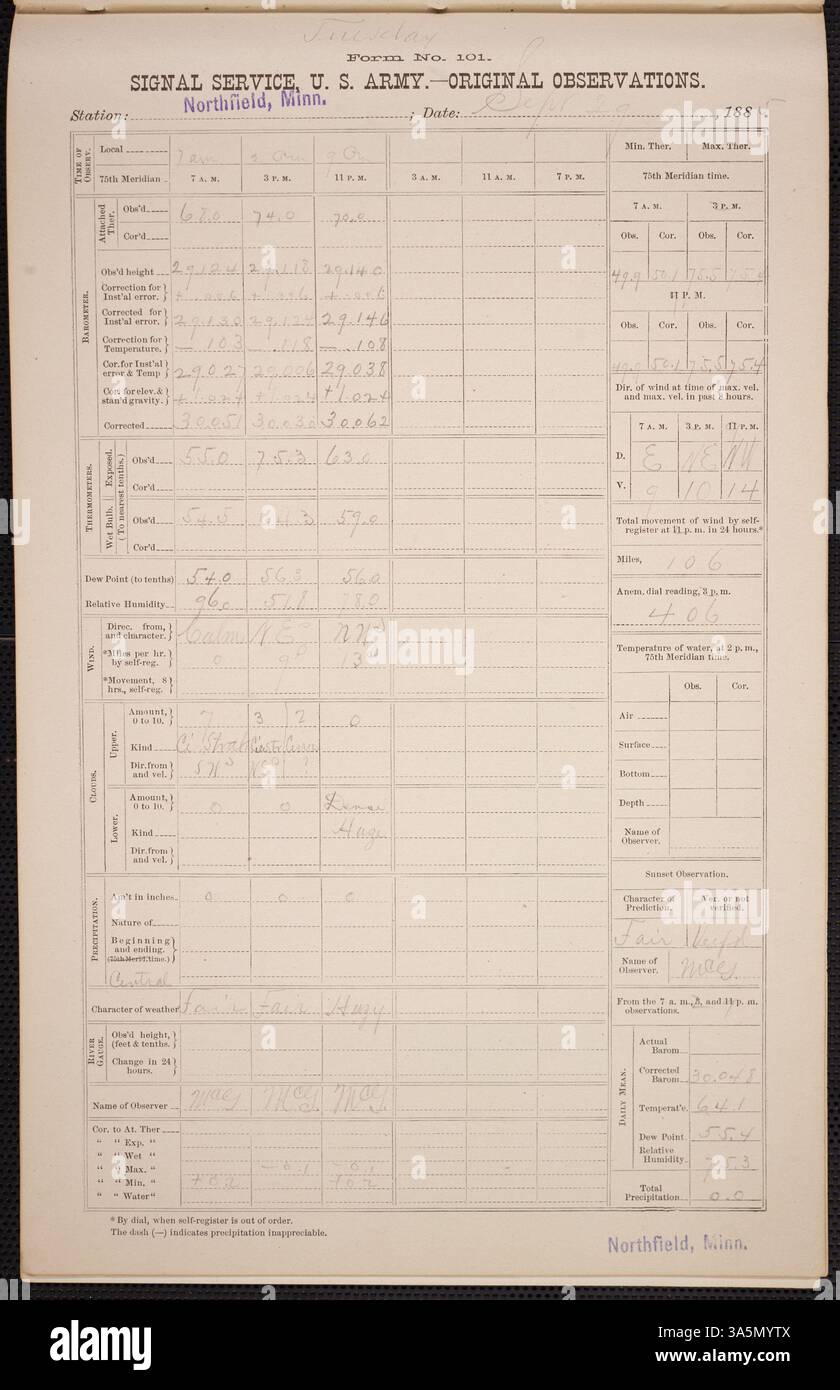 Tuesday
Form No. 101.
SIGNAL SERVICE, U. S. ARMY.—ORIGINAL OBSERVATIONS.
Station: Northfield, Minn. ; Date: Sept 29 , 1885.
TIME OF OBSERV. Local 7 am 2 Pm 9 Pm
75th Meridian 7 A. M. 3 P. M. 11 P. M. 3 A. M. 11 A. M. 7 P. M.
Attached Ther. Obs'd 68.0 74.0 70.0
Cor'd
BAROMETER. Obs'd height 29.124 29.118 29.140
Correction for Inst'al error. +.006 +.006 +.006
Corrected for Inst'al error. 29.130 29.124 29.146
Correction for Temperature. —.103 —.118 —.108
Cor. for Inst'al error & Temp 29.027 29.006 29.038
Cor. for elev. & stan'd gravity. +1.024 +1.024 +1.024
Corrected 30.051 30.030 30.062
THERMOMETERS. (To nearest tenths.)
Exposed. Obs'd 55.0 75.3 63.0
Cor'd
Wet Bulb. Obs'd 54.5 59.0
Cor'd
Dew Point (to tenths) 54.0 56.3 56.0
Relative Humidity 96.0 51.8 78.0
WIND. Direc. from, and character. Calm NE NW
*Miles per hr. by self-reg. 0 9 13
*Movement, 8 hrs., self-reg.
CLOUDS. Upper. Amount, 0 to 10. 7 3 2 0
Kind Ci Strat
Dir. from and vel. SW ?
Lower. Amount, 0 to 10. 0 0 Dense
Kind Haze
Dir. from and vel.
PRECIPITATION. Am't in inches 0 0 0
Nature of
Beginning and ending. (75th Merid. time.)
Central
Character of weather Fair Fair Hazy
RIVER GAUGE. Obs'd height, (feet & tenths.)
Change in 24 hours.
Name of Observer McG McG. McG.
Cor. to At. Ther
" " Exp. "
" " Wet "
" " Max. " -0.1 -0.1
" " Min. " +0.2 +0.2
" " Water "
* By dial, when self-register is out of order.
The dash (—) indicates precipitation inappreciable.
Min. Ther. Max. Ther.
75th Meridian time.
7 A. M. 3 P. M.
Obs. Cor. Obs. Cor.
49.9 50.1 75.5 75.4
11 P. M.
Obs. Cor. Obs. Cor.
49.9 50.1 75.5 75.4
Dir. of wind at time of max. vel. and max. vel. in past 8 hours.
7 A. M. 3 P. M. 11 P. M.
D. E NE NW
V. 9 10 14
Total movement of wind by self-register at 11 p. m. in 24 hours.*
Miles, 106
Anem. dial reading, 3 p. m.
406
Temperature of water, at 2 p. m., 75th Meridian time.
Obs. Cor.
Air
Surface
Bottom
Depth
Name of Observer.
Sunset Observation.
Character of Prediction. Ver. or not verified.
Fair Verifd
Name of Observer. McG.
From the 7 a. m., 3, and 11 p. m. observations.
DAILY MEAN. Actual Barom.
Corrected Barom. 30.048
Temperat'e. 64.1
Dew Point. 55.4
Relative Humidity. 75.3
Total Precipitation. 0.0
Northfield, Minn.
alamy
Image ID: 3A5MYTX
www.alamy.com